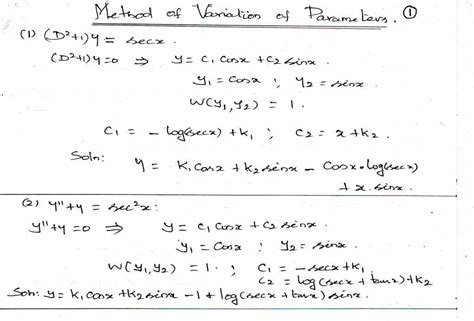 Method of Variation of Parameters. ①
(1) (D²+1)y = secx.
(D²+1)y=0 ⇒ y = c₁ cosx + c₂ sinx.
y₁ = cosx ; y₂ = sinx
W(y₁,y₂) = 1.
c₁ = - log(secx) + k₁ ; c₂ = x + k₂.
Soln: y = k₁ cosx + k₂ sinx - cosx·log(secx)
+ x·sinx.
(2) y"+y = sec²x:
y"+y = 0 ⇒ y = c₁ cosx + c₂ sinx.
y₁ = cosx ; y₂ = sinx.
W(y₁,y₂) = 1. ; c₁ = -secx + k₁
c₂ = log(secx + tanx) + k₂
Soln: y = k₁ cosx + k₂ sinx - 1 + log(secx + tanx) sinx.